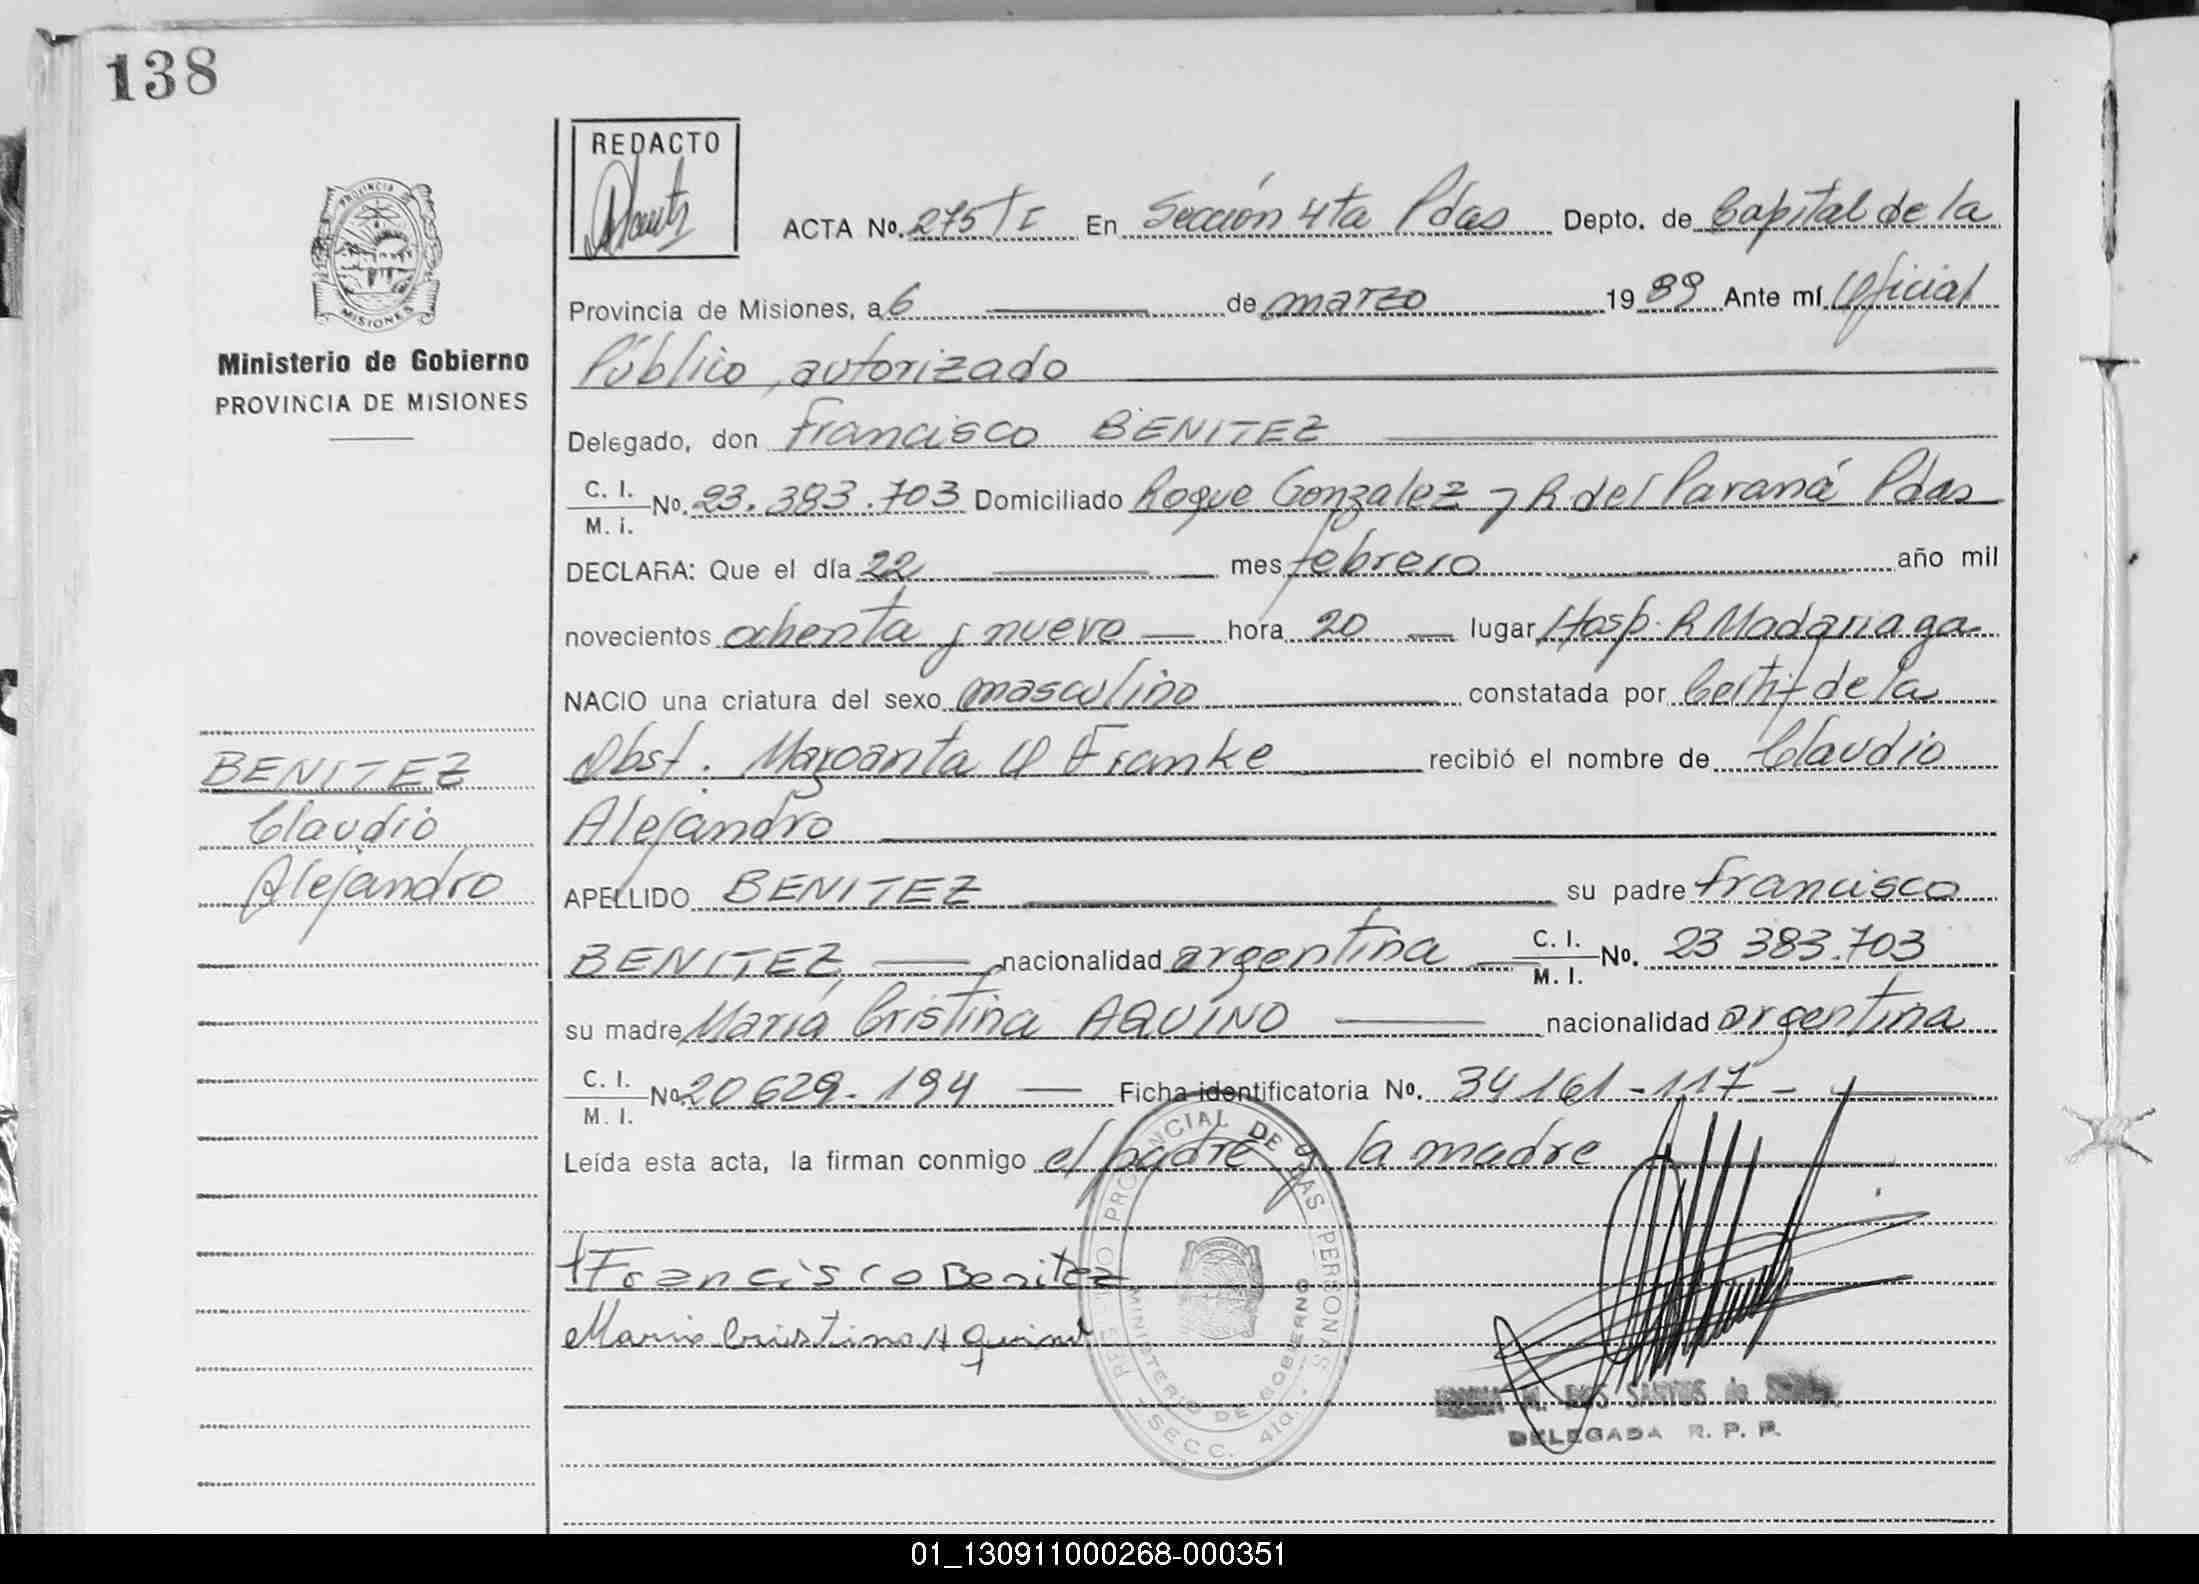 138
REDACTO
PROVINCIA DE
MISIONES
Ministerio de Gobierno
PROVINCIA DE MISIONES
ACTA No. 275 T I En Sección 4ta Pdas Depto. de Capital de la
Provincia de Misiones, a 6 de marzo 19 89 Ante mí Oficial
Público, autorizado
Delegado, don Francisco BENITEZ
C. I.
M. I. No. 23.383.703 Domiciliado Roque Gonzalez y R del Paraná Pdas
DECLARA: Que el día 22 mes febrero año mil
novecientos ochenta y nueve hora 20 lugar Hosp. R Madariaga
NACIO una criatura del sexo masculino constatada por Certif de la
Obst. Margarita Franke recibió el nombre de Claudio
Alejandro
APELLIDO BENITEZ su padre Francisco
BENITEZ, nacionalidad argentina C. I.
M. I. No. 23 383.703
su madre María Cristina AQUINO nacionalidad argentina
C. I.
M. I. No. 20 629.194 Ficha identificatoria No. 34161-117-
Leída esta acta, la firman conmigo el padre y la madre
BENITEZ
Claudio
Alejandro
Francisco Benitez
Maria Cristina Aquino
REGISTRO PROVINCIAL DE LAS PERSONAS
MINISTERIO DE GOBIERNO
SECC. 4ta.
DOS SANTOS de
DELEGADA R. P. P.
01_130911000268-000351